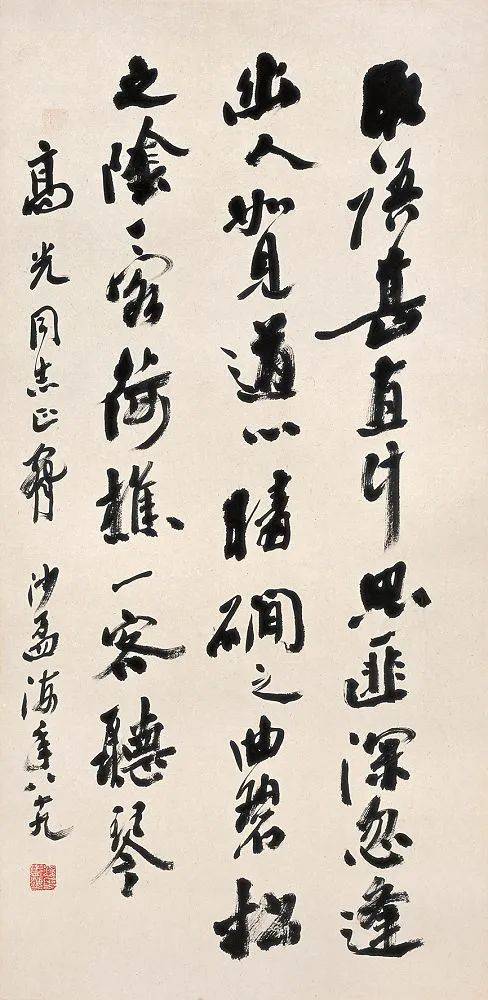 取語甚直計思匪深忽逢
幽人如見道心晴磵之曲碧松
之陰一客荷樵一客聽琴
高光同志正 沙孟海年八十九